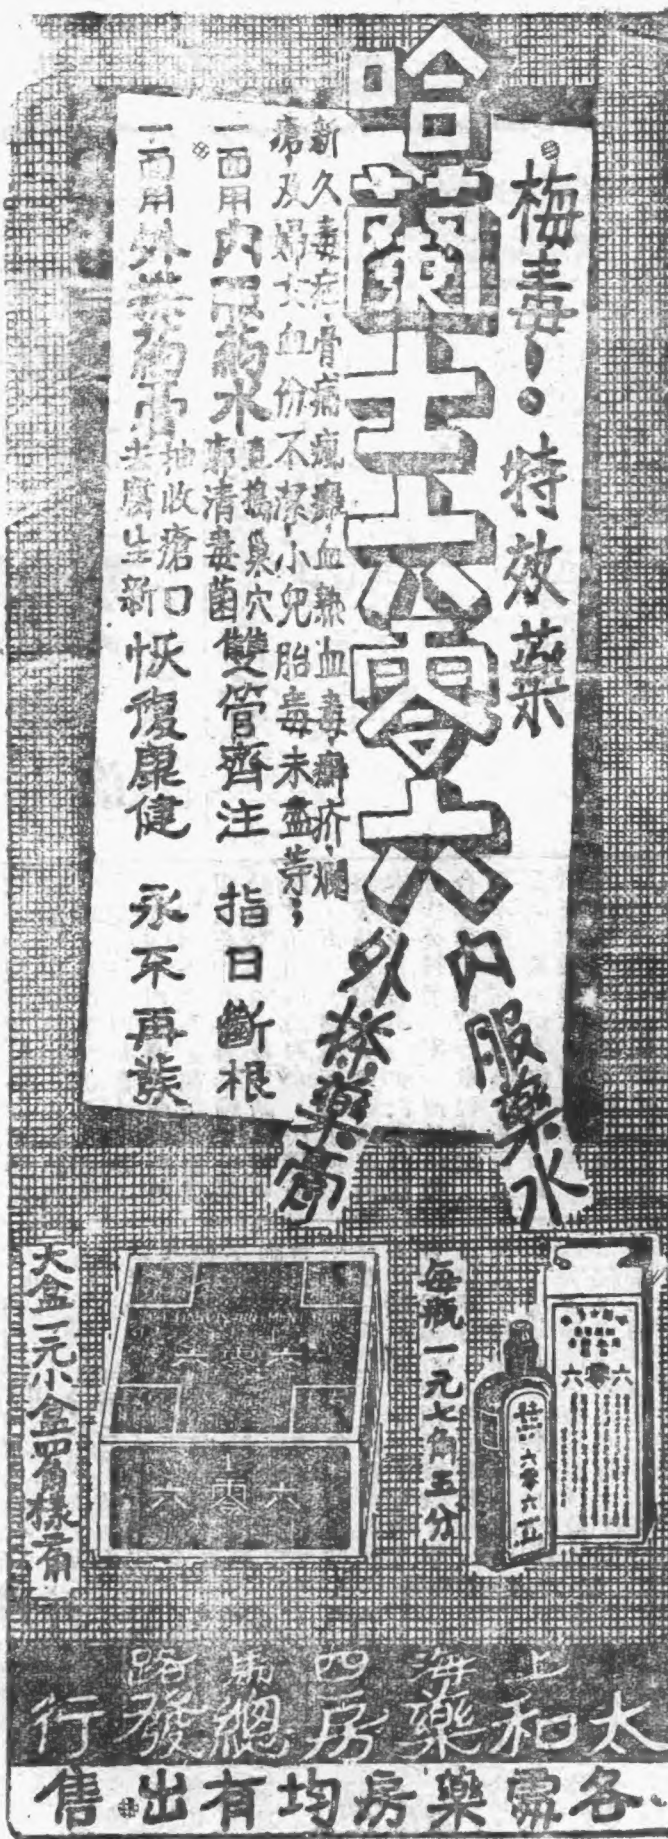 梅毒！。特效藥
哈蘭士六零六
內服藥水
外搽藥膏
新久毒症、骨痛瘋癱血熱血毒癬疥爛
瘡及婦女血份不潔、小兒胎毒未盡等；
一面用內服藥水直搗巢穴肅清毒菌雙管齊注 指日斷根
一面用外搽藥膏抽收瘡口去腐生新恢復康健 永不再發
每瓶一元七角五分
六零六
六零六
大盒一元小盒四角樣一角
六零六
六零六
上海四馬路
太和藥房總發行
各處藥房均有出售